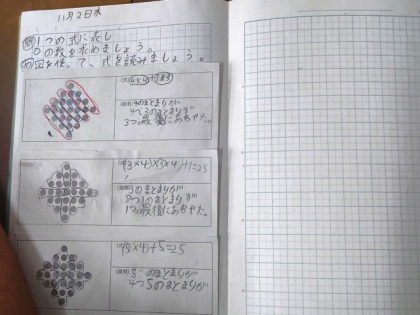 11月2日木
問 1つの式に表し
○の数を求めましょう。
め 図を使って、式を読みましょう。
(式)4×4+3×3=25
(説明)4のまとまりが
4つで3のまとまりが
3つ最後にあわせた。
(3×4)+(3×4)+1=25
(説明)3のまとまりが
8つ1のまとまりが
1つ最後にあわせた。
(5×4)+5=25
(説明)5のまとまりが
4つ5のまとまりが